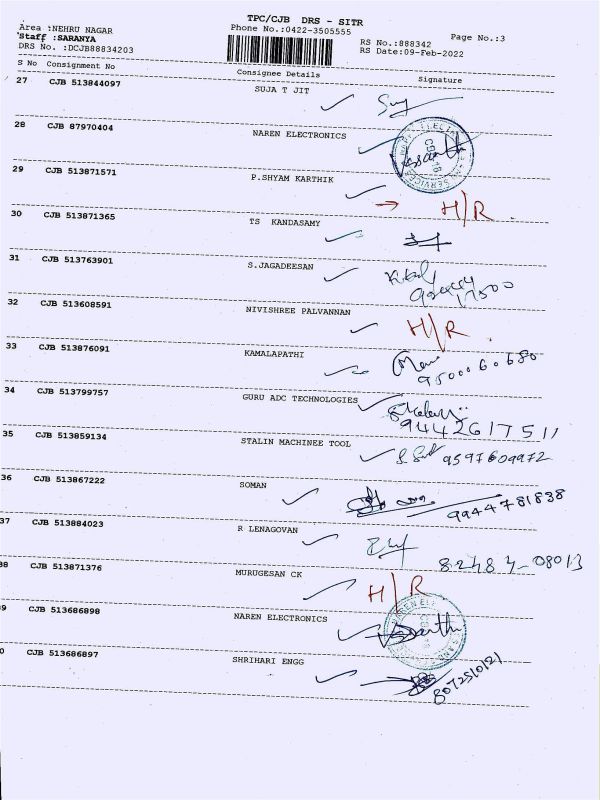 TPC/CJB DRS - SITR
Area :NEHRU NAGAR Phone No.:0422-3505555 Page No.:3
Staff :SARANYA RS No.:888342
DRS No. :DCJB88834203 RS Date:09-Feb-2022
S No Consignment No Consignee Details Signature
27 CJB 513844097 SUJA T JIT
28 CJB 87970404 NAREN ELECTRONICS
29 CJB 513871571 P.SHYAM KARTHIK H/R
30 CJB 513871365 TS KANDASAMY
31 CJB 513763901 S.JAGADEESAN
17500
32 CJB 513608591 NIVISHREE PALVANNAN H/R
33 CJB 513876091 KAMALAPATHI
9500060680
34 CJB 513799757 GURU ADC TECHNOLOGIES
9442617511
35 CJB 513859134 STALIN MACHINEE TOOL 9597609972
36 CJB 513867222 SOMAN 9944781838
37 CJB 513884023 R LENAGOVAN
38 CJB 513871376 MURUGESAN CK H/R
9 CJB 513686898 NAREN ELECTRONICS
0 CJB 513686897 SHRIHARI ENGG